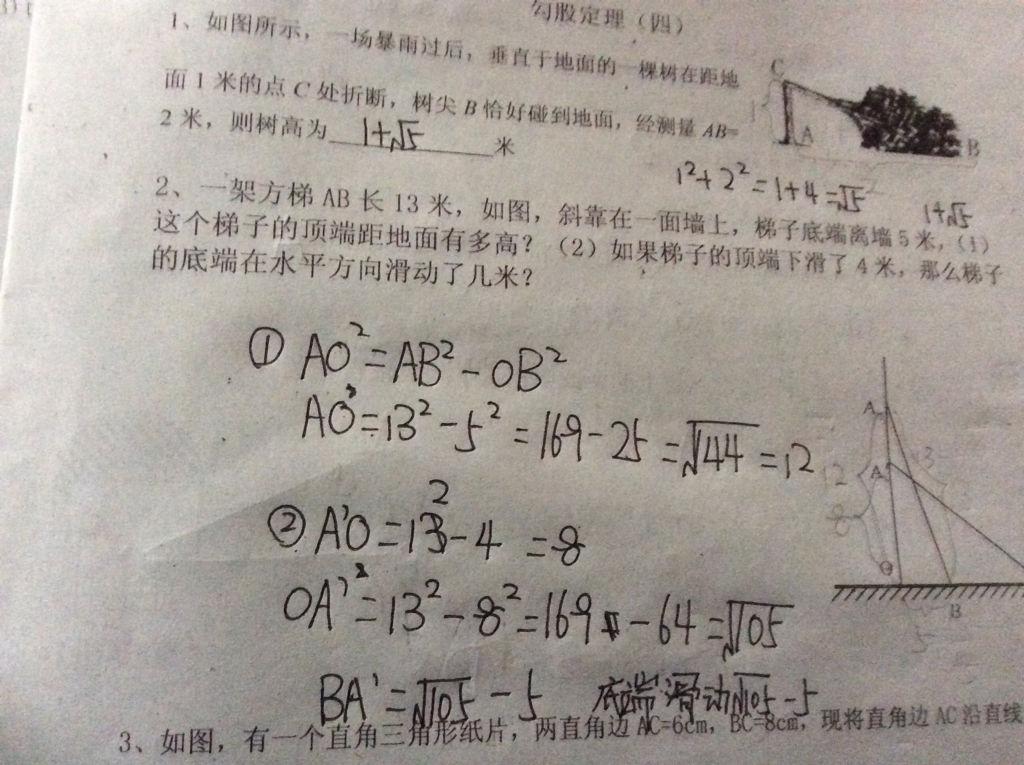 勾股定理（四）
1、如图所示，一场暴雨过后，垂直于地面的一棵树在距地
面1米的点C处折断，树尖B恰好碰到地面，经测量AB=
2米，则树高为 1+√5 米
C
1
A
B
1²+2²=1+4=√5
1+√5
2、一架方梯AB长13米，如图，斜靠在一面墙上，梯子底端离墙5米，(1)
这个梯子的顶端距地面有多高？（2）如果梯子的顶端下滑了4米，那么梯子
的底端在水平方向滑动了几米？
① AO²=AB²-OB²
AO²=13²-5²=169-25=√144=12
② A'O=13²-4=8
OA'²=13²-8²=169-64=√105
BA'=√105-5 底端滑动√105-5
A
A'
12
13
8
O
B
5
3、如图，有一个直角三角形纸片，两直角边AC=6cm，BC=8cm，现将直角边AC沿直线